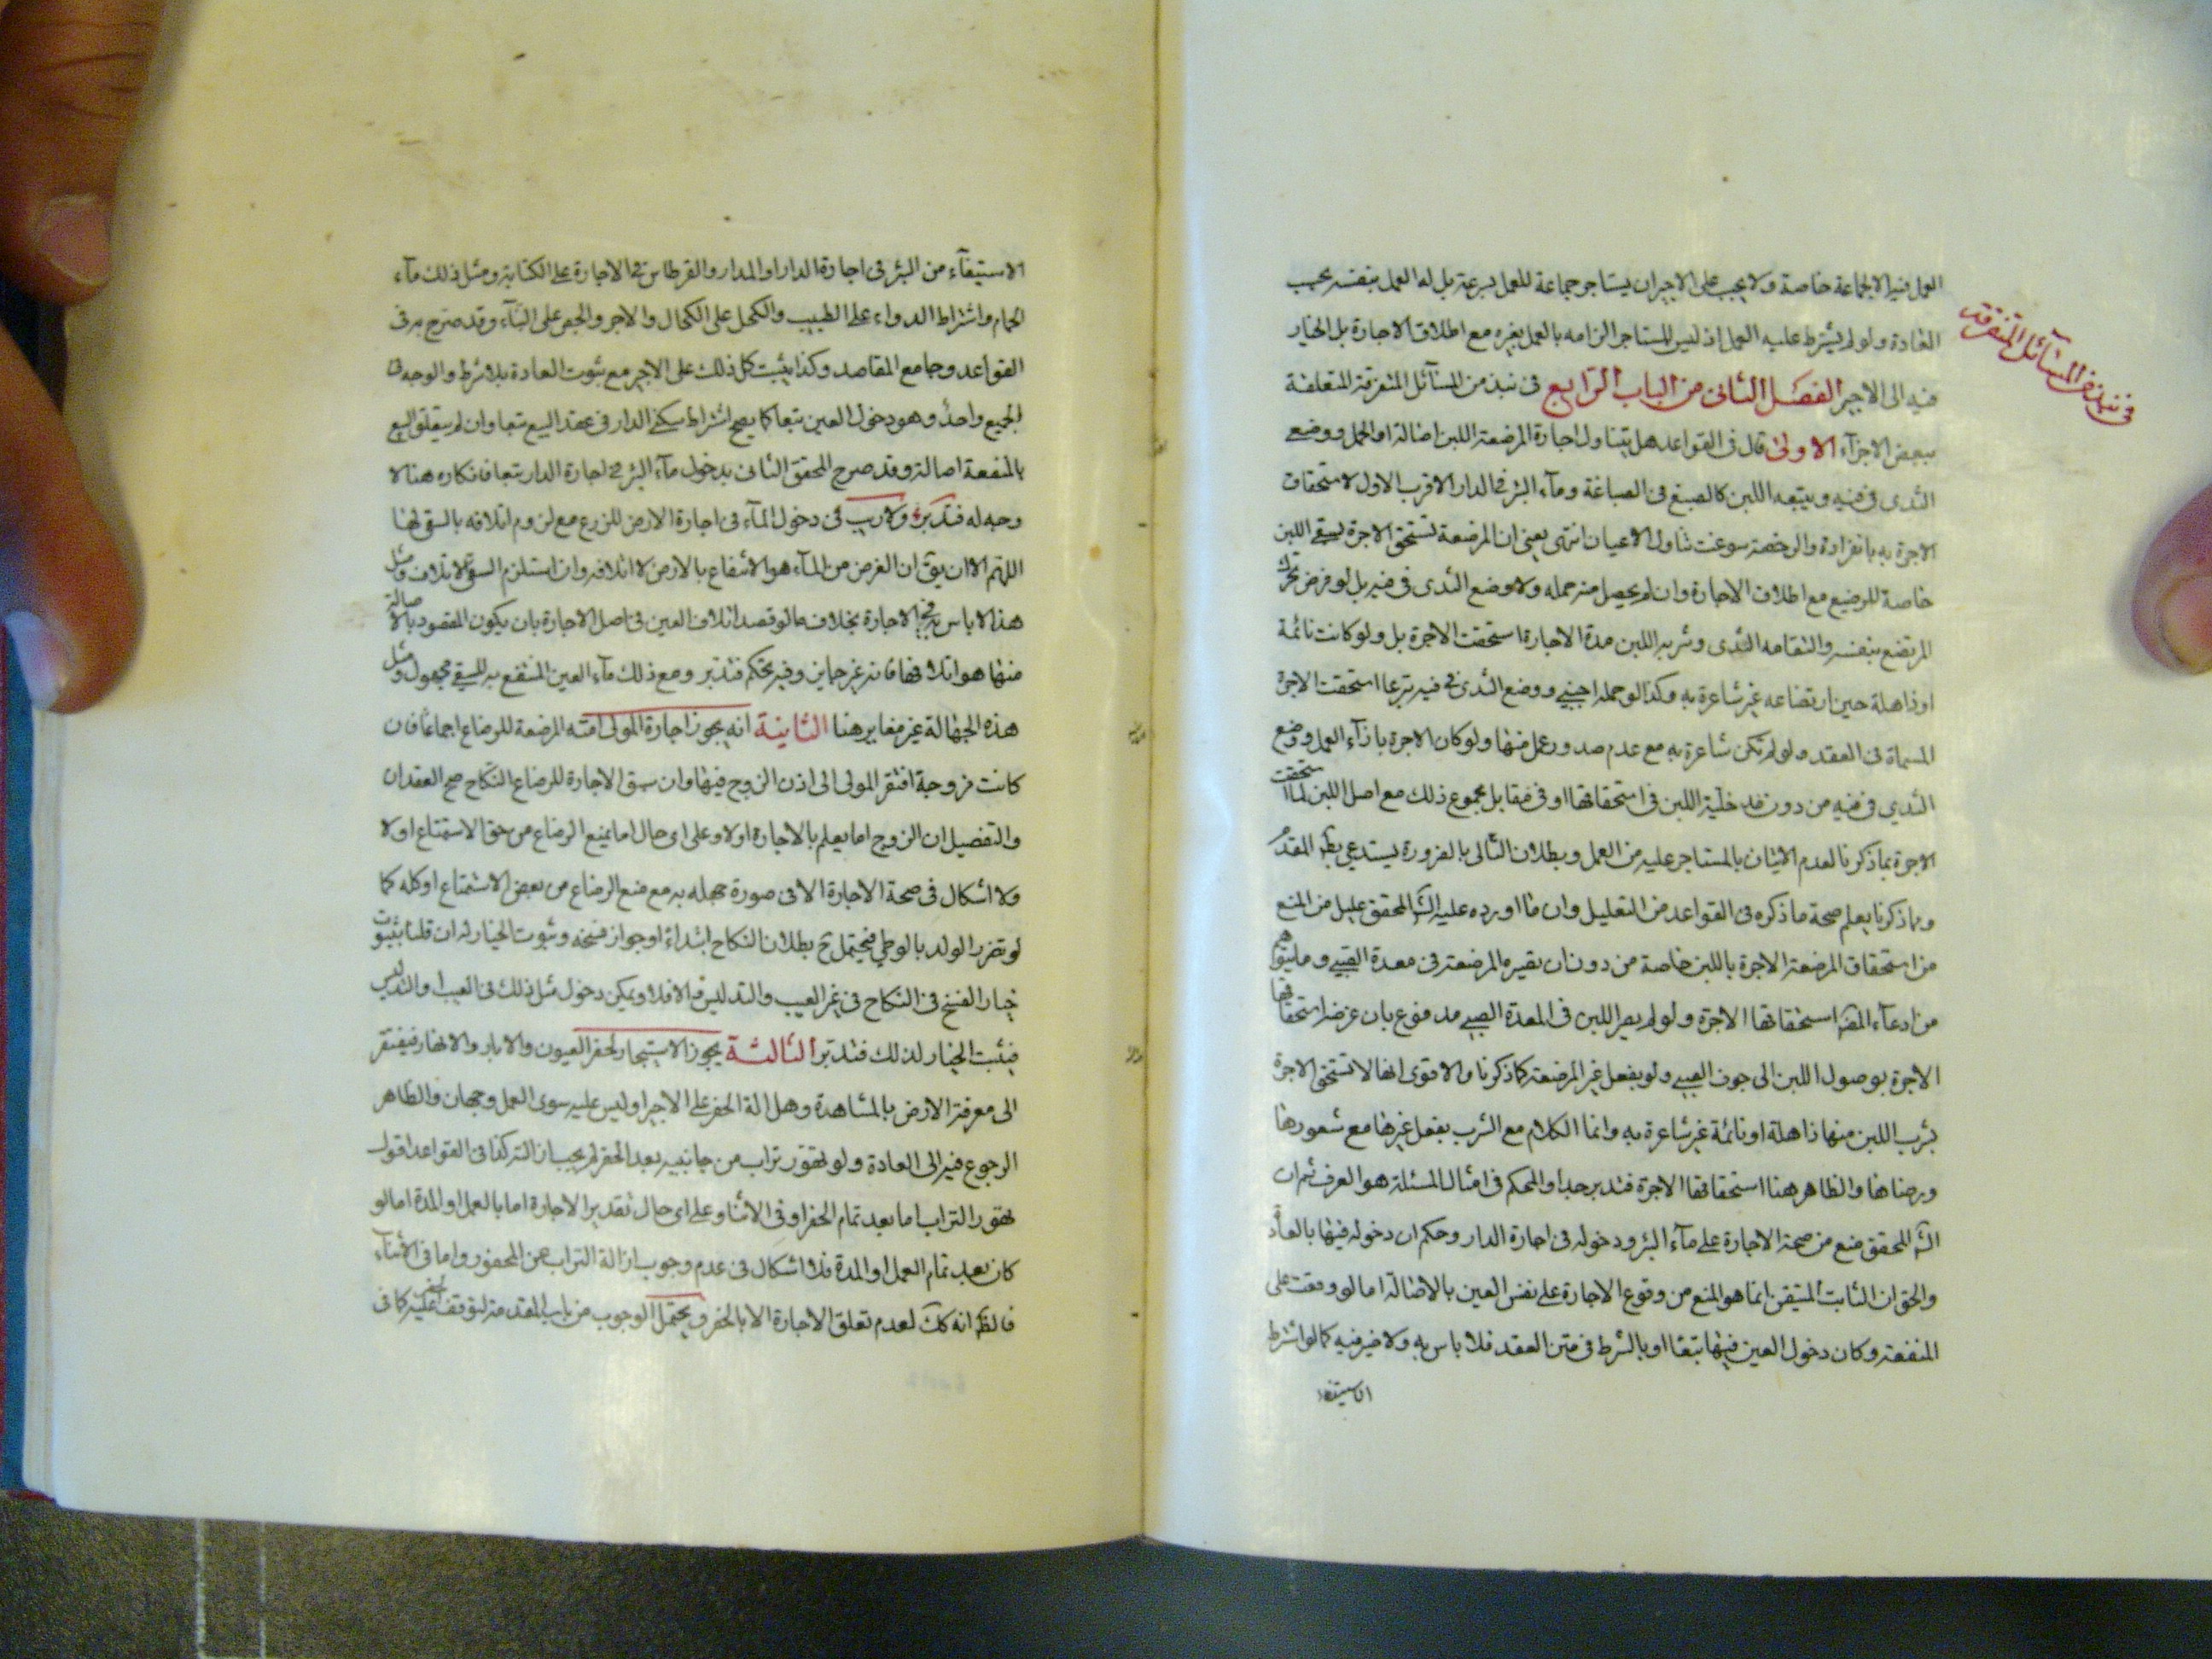 في نبذ من المسائل المتفرقة
العمل فيه الا لجماعة خاصة ولا يجب على الاجير ان يستاجر جماعة للعمل بسرعة بل له العمل بنفسه بحسب
العادة ولو لم يشترط عليه العمل اذ ليس للمستاجر الزامه بالعمل بغيره مع اطلاق الاجارة بل الخيار
فيه الى الاجير الفصل الثانى من الباب الرابع فى نبذ من المسآئل المتفرقة المتعلقة
ببعض الاجزآء الاولى قال فى القواعد هل يتناول اجارة المرضعة اللبن اصالة او الحمل ووضع
الثدى فى فيه ويتبعه اللبن كالصبغ فى الصباغة ومآء البئر فى الدار الاقرب الاول لاستحقاق
الاجرة به بانفراده والرخصة سوغت تناول الاعيان انتهى يعنى ان المرضعة تستحق الاجرة بسقى اللبن
خاصة للرضيع مع اطلاق الاجارة وان لم يحصل منه حمله ولا وضع الثدى فى فيه بل لو فرض تحرك
المرتضع بنفسه والتقامه الثدى وشربه اللبن مدة الاجارة استحقت الاجرة بل ولو كانت نائمة
او ذاهلة حين ارتضاعه غير شاعرة به وكذا لو حمله اجنبى ووضع الثدى فى فيه تبرعا استحقت الاجرة
المسماة فى العقد ولو لم تكن شاعرة به مع عدم صدور عمل منها ولو كان الاجرة بازآء العمل ووضع
الثدي فى فيه من دون مدخلية اللبن فى استحقاقها او فى مقابل مجموع ذلك مع اصل اللبن لما استحقت
الاجرة بما ذكرنا لعدم الاتيان بالمستاجر عليه من العمل وبطلان التالى بالضرورة يستدعي بط المقدم
وبما ذكرنا يعلم صحة ما ذكره فى القواعد من التعليل وان ما اورده عليه الش المحقق عليل من المنع
من استحقاق المرضعة الاجرة باللبن خاصة من دون ان تصيره المرضعة فى معدة الصبي وما يتوهم
من ادعآء المص استحقاقها الاجرة ولو لم يصر اللبن فى المعدة الصبي مدفوع بان غرضه استحقاقها
الاجرة بوصول اللبن الى جوف الصبي ولو بفعل غير المرضعة كما ذكرنا والاقوى انها لا تستحق الاجرة
بشرب اللبن منها ذاهلة او نائمة غير شاعرة به وانما الكلام مع الشرب بفعل غيرها مع شعورها
ورضاها والظاهر هنا استحقاقها الاجرة فتدبر جدا والمحكم فى امثال المسئلة هو العرف ثم ان
الش المحقق منع من صحة الاجارة على مآء البئر ودخوله فى اجارة الدار وحكم ان دخوله فيها بالعادة
والحق ان الثابت المتيقن انما هو المنع من وقوع الاجارة على نفس العين بالاصالة اما لو وقعت على
المنفعة وكان دخول العين فيها تبعا او بالشرط فى متن العقد فلا باس به ولا ضير فيه كما لو اشترط
الاستيفاء
الاستيفآء من البئر فى اجارة الدار او المدار والقرطاس فى الاجارة على الكتابة ومثل ذلك مآء
الحمام واشتراط الدواء على الطبيب والكحل على الكحال والاجر والجص على البنآء وقد صرح به فى
القواعد وجامع المقاصد وكذا يثبت كل ذلك على الاجير مع ثبوت العادة بلا شرط والوجه فى
الجميع واحد وهو دخول العين تبعا كما يصح اشتراط سكنى الدار فى عقد البيع تبعا وان لم يتعلق البيع
بالمنفعة اصالة وقد صرح المحقق الثانى بدخول مآء البئر فى اجارة الدار تبعا فانكاره هنا لا
وجه له فتدبر ولا ريب فى دخول المآء فى اجارة الارض للزرع مع لزوم اتلافه بالسقى لها
اللهم الا ان يق ان الغرض من المآء هو الانتفاع بالارض لا اتلافه وان استلزم السقى الاتلاف ومثل
هذا لا باس به فى الاجارة بخلاف ما لو قصد اتلاف العين فى اصل الاجارة بان يكون المقصود بالاصالة
منها هو اتلافها فانه غير جايز وفيه تحكم فتدبر ومع ذلك مآء العين المنتفع به للسقى مجهول ومثل
هذه الجهالة غير مغاير هنا الثانية انه يجوز اجارة المولى امته المرضعة للرضاع اجماعا فان
كانت مزوجة افتقر المولى الى اذن الزوج فيها وان سبق الاجارة للرضاع النكاح صح العقدان
والتفصيل ان الزوج اما يعلم بالاجارة اولا وعلى اى حال اما يمنع الرضاع من حق الاستمتاع اولا
ولا اشكال فى صحة الاجارة الا فى صورة جهله به مع منع الرضاع من بعض الاستمتاع او كله كما
لو تضرر الولد بالوطي فيحتمل ح بطلان النكاح ابتداء او جواز فسخه وثبوت الخيار له ان قلنا بثبوت
خيار الفسخ فى النكاح فى غير العيب والتدليس والا فلا ويمكن دخول مثل ذلك فى العيب او التدليس
فيثبت الخيار لذلك فتدبر الثالثة يجوز الاستيجار لحفر العيون والابار والانهار فيفتقر
الى معرفة الارض بالمشاهدة وهل الة الحفر على الاجير او ليس عليه سوى العمل وجهان والظاهر
الرجوع فيه الى العادة ولو تهور تراب من جانبيه بعد الحفر لم يجب ازالته كذا فى القواعد اقول
تهور التراب اما بعد تمام الحفر او فى الاثناء وعلى اى حال تقدير الاجارة اما بالعمل او المدة اما لو
كان بعد تمام العمل او المدة فلا اشكال فى عدم وجوب ازالة التراب عن المحفور واما فى الاثنآء
فالظ انه كك لعدم تعلق الاجارة الا بالحفر ويحتمل الوجوب من باب المقدمة لتوقف الحفر عليه كما فى